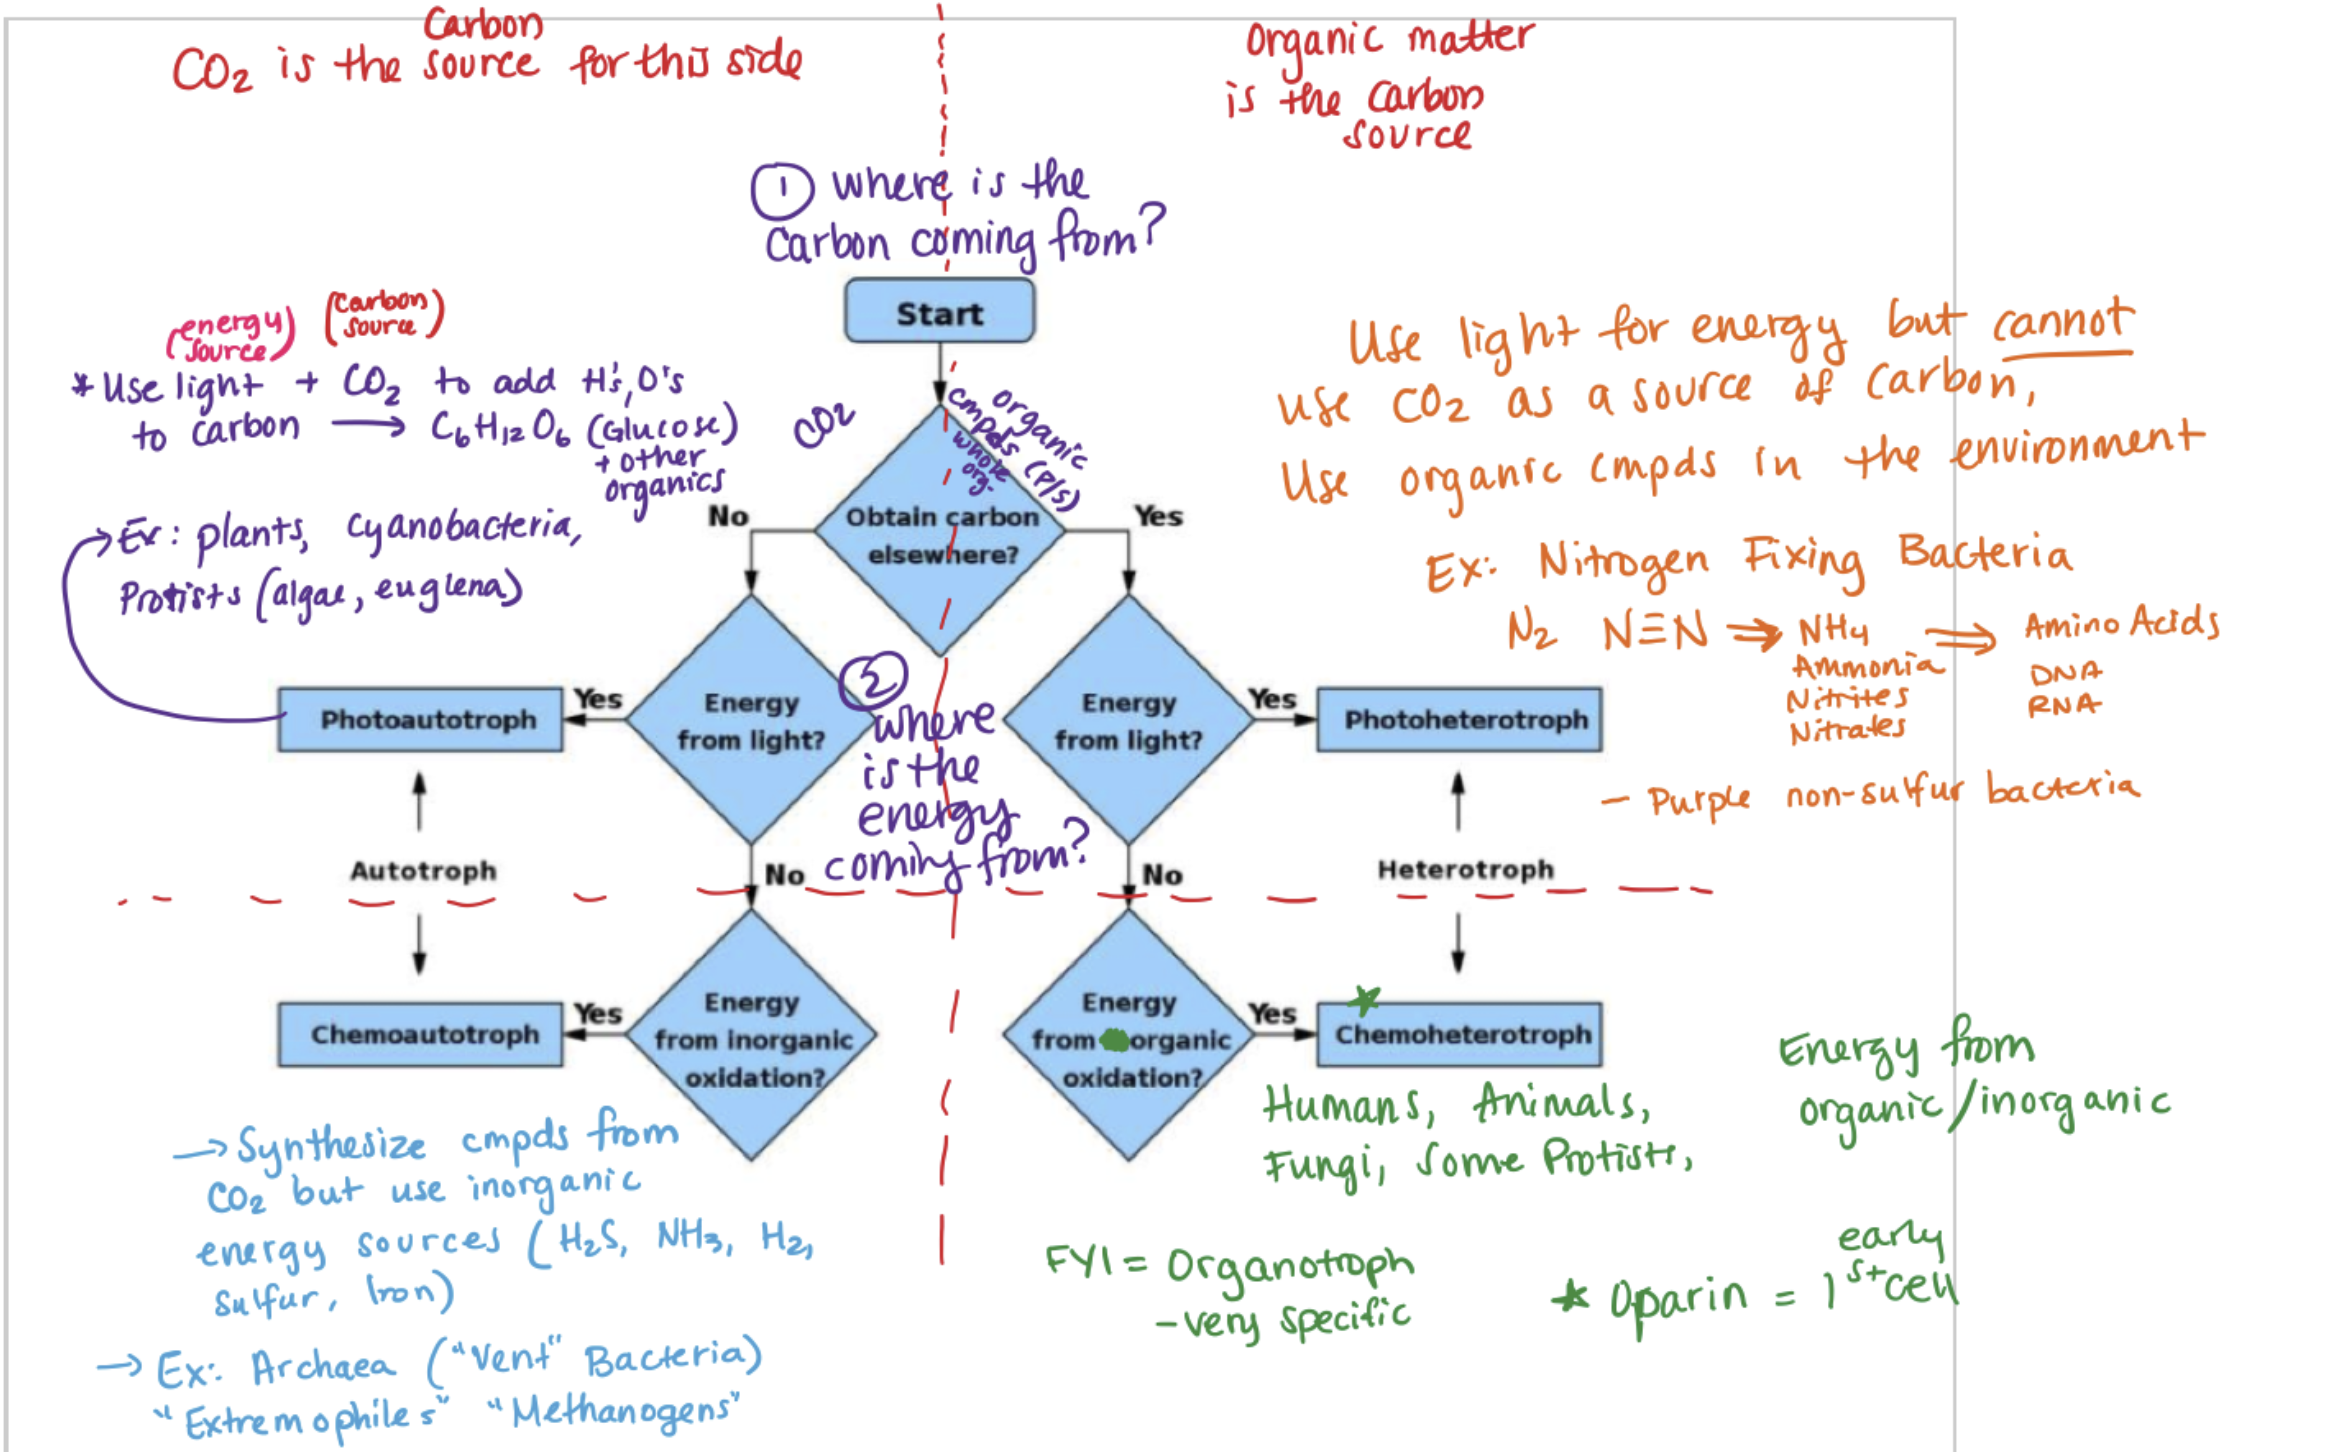 Carbon
CO2 is the source for this side
Organic matter
is the Carbon
source
① where is the
Carbon coming from?
Start
(energy source) (carbon source)
* Use light + CO2 to add H's, O's
to carbon → C6H12O6 (Glucose)
+ other
organics
Ex: plants, cyanobacteria,
Protists (algae, euglena)
CO2
organic
cmpds (P/S)
whole
org.
Obtain carbon
elsewhere?
No
Yes
Use light for energy but cannot
use CO2 as a source of carbon,
Use organic cmpds in the environment
Ex: Nitrogen Fixing Bacteria
N2 N≡N ⇒ NH4 ⇒ Amino Acids
Ammonia DNA
Nitrites RNA
Nitrates
- Purple non-sulfur bacteria
Photoautotroph
Yes
Energy
from light?
② where
is the
energy
coming from?
Energy
from light?
Yes
Photoheterotroph
Autotroph
No
No
Heterotroph
Chemoautotroph
Yes
Energy
from inorganic
oxidation?
Energy
from organic
oxidation?
Yes
★
Chemoheterotroph
→ Synthesize cmpds from
CO2 but use inorganic
energy sources (H2S, NH3, H2,
sulfur, Iron)
→ Ex: Archaea ("Vent" Bacteria)
"Extremophiles" "Methanogens"
Humans, Animals,
Fungi, Some Protists,
Energy from
organic/inorganic
FYI = Organotroph
- very specific
early
★ Oparin = 1st cell